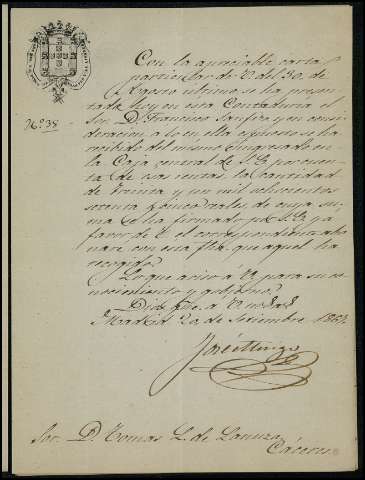 Nº 38.
Con la apreciable carta
particular de V del 30 de
Agosto último se ha presen-
tado hoy en esta Contaduria el
Sor. D. Francisco y en consi-
deracion a lo en ella expuesto se ha
recibido del mismo é ingresado en
la Caja general de S. E. por cuenta
de esas rentas la cantidad
de treinta y un mil ochocientos
setenta y cinco reales de cuya su-
ma se ha firmado por S. E. y á
favor de V. el correspondiente abo-
naré con esta fha, que aquel ha
recogido.
Lo que aviso á V. para su co-
nocimiento y gobierno.
Dios gue. á V.
Madrid 2 de Setiembre
José
Sor. D. Tomas L. de Lanuza.
Cáceres